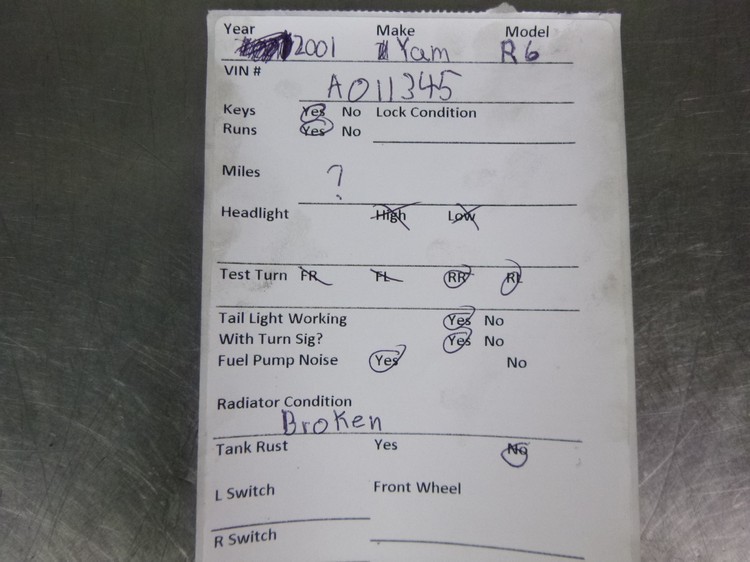 Year 2001 Make Yam Model R6
VIN # A011345
Keys Yes No Lock Condition
Runs Yes No
Miles ?
Headlight High Low
Test Turn FR FL RR RL
Tail Light Working Yes No
With Turn Sig? Yes No
Fuel Pump Noise Yes No
Radiator Condition
Broken
Tank Rust Yes No
L Switch Front Wheel
R Switch